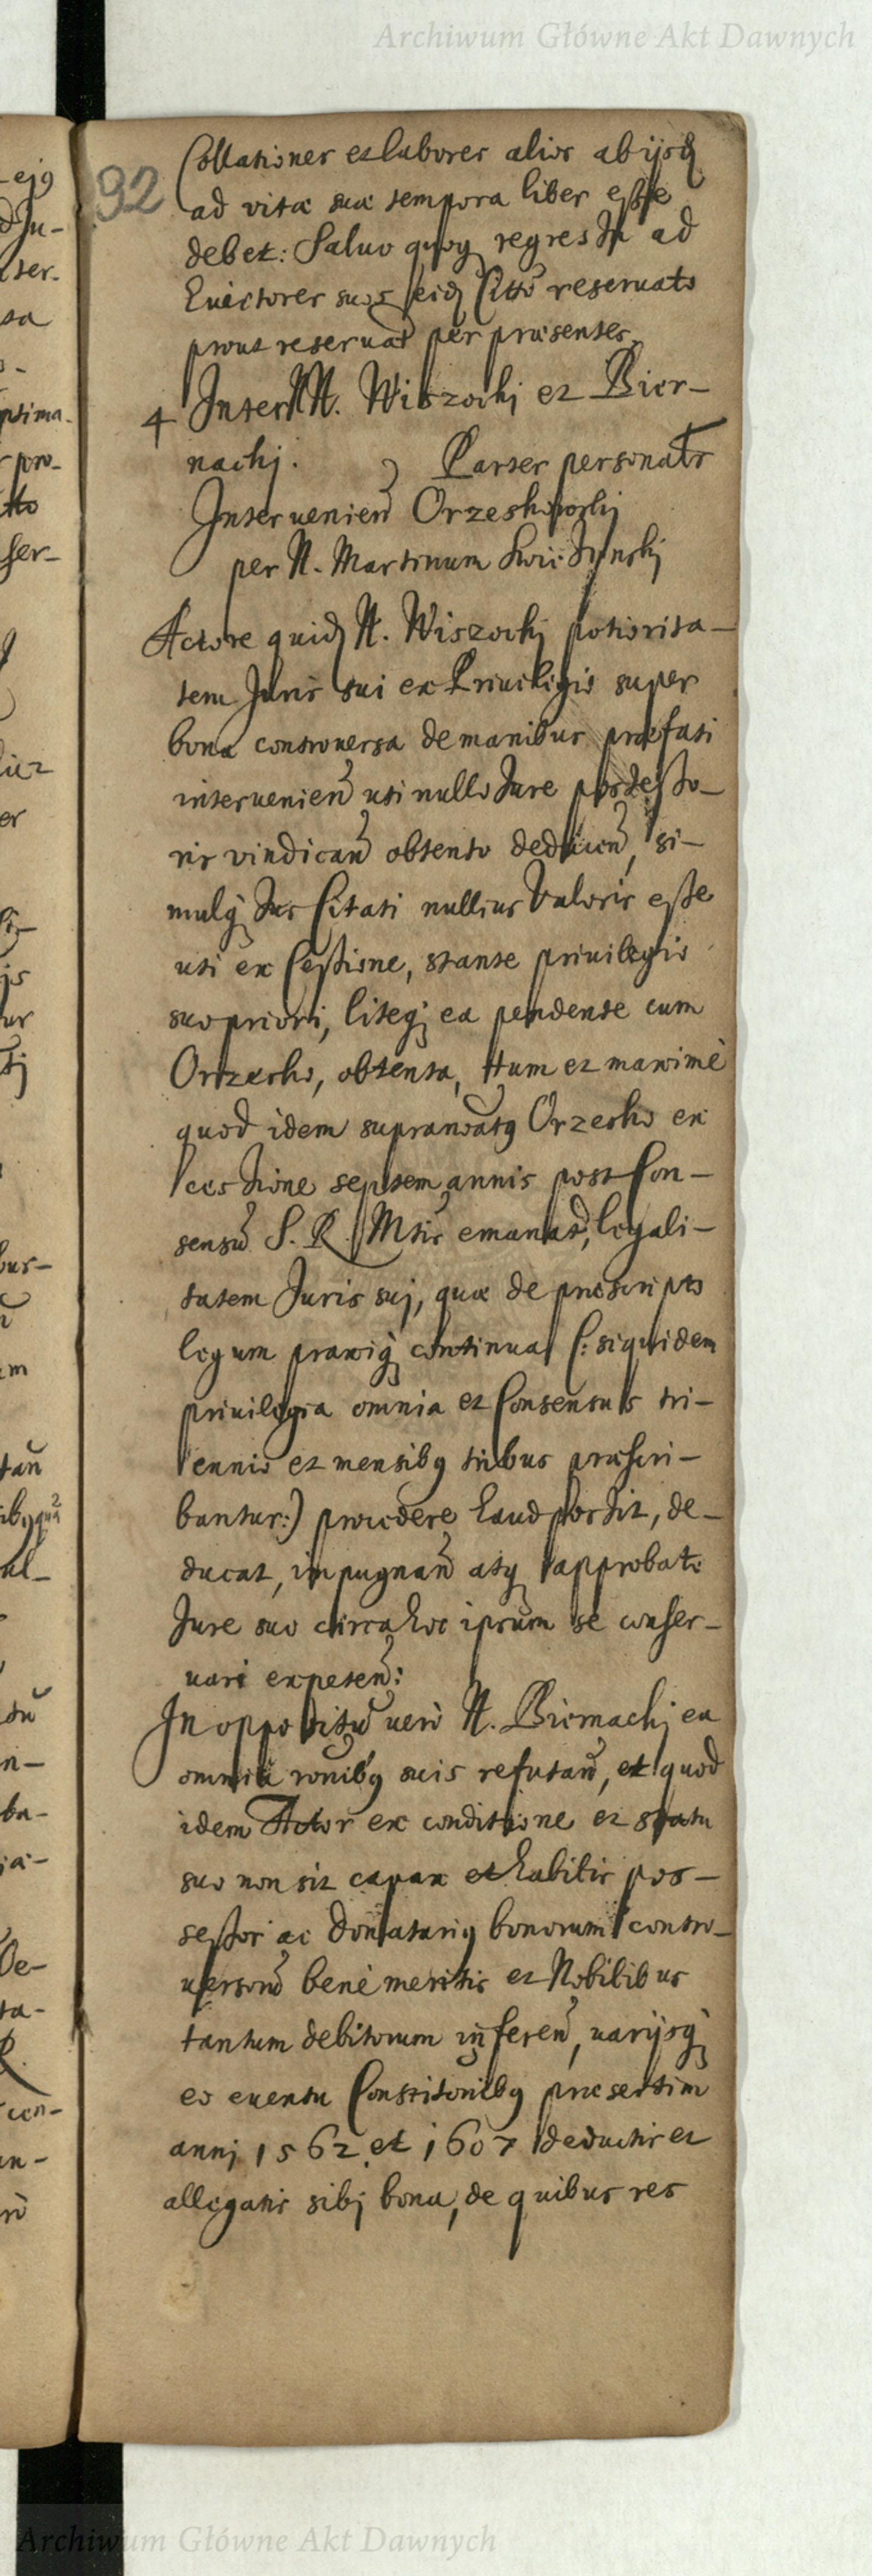 Archiwum Główne Akt Dawnych
92
Collationes et labores alios ab ijsq
ad vitæ suæ tempora liber esse
debet: Saluo quoq regressu ad
Euictores suos eid Citto reseruato
prout reseruat per præsentes.
4 Inter N. N. Wiszocki et Bier-
nacki. Partes personatr
Interuenien Orzeskowski
per N. Martinum
Actore quid N. Wiszocki potiorita-
tem Juris sui ex Priuilegio super
bona controuersa de manibus præfati
interuenien uti nullo Jure possesso-
ris vindican obtento deducen, si-
mulq Jus Citati nullius valoris esse
uti ex Cessione, stante priuilegio
suo priori, liteq ea pendente cum
Orzesko, obtenta, tum et maximè
quod idem supranoatg Orzesko ex
cessione septem annis post Con-
sensu S. R. Mtis emanat, legali-
tatem Juris sui, quæ de præscripto
legum praxiq continua (: siquidem
priuilegia omnia et Consensus tri-
ennio et mensibg tribus præscri-
bantur:) procedere haud possit, de-
ducat, impugnan atq approbato
Jure suo circa hoc ipsum se conser-
uari expeten:
In oppositu uero N. Biernacki ea
omnia ronibg suis refutan, et quod
idem Actor ex conditione et statu
suo non sit capax et habilis pos-
sessor ac donatarig bonorum contro-
uerson benè meritis et Nobilibus
tantum debitorum inferen, uarijsq
eo euentu Constitonibg præsertim
anni 1562 et 1607 deductis et
allegatis sibj bona, de quibus res
Archiwum Główne Akt Dawnych